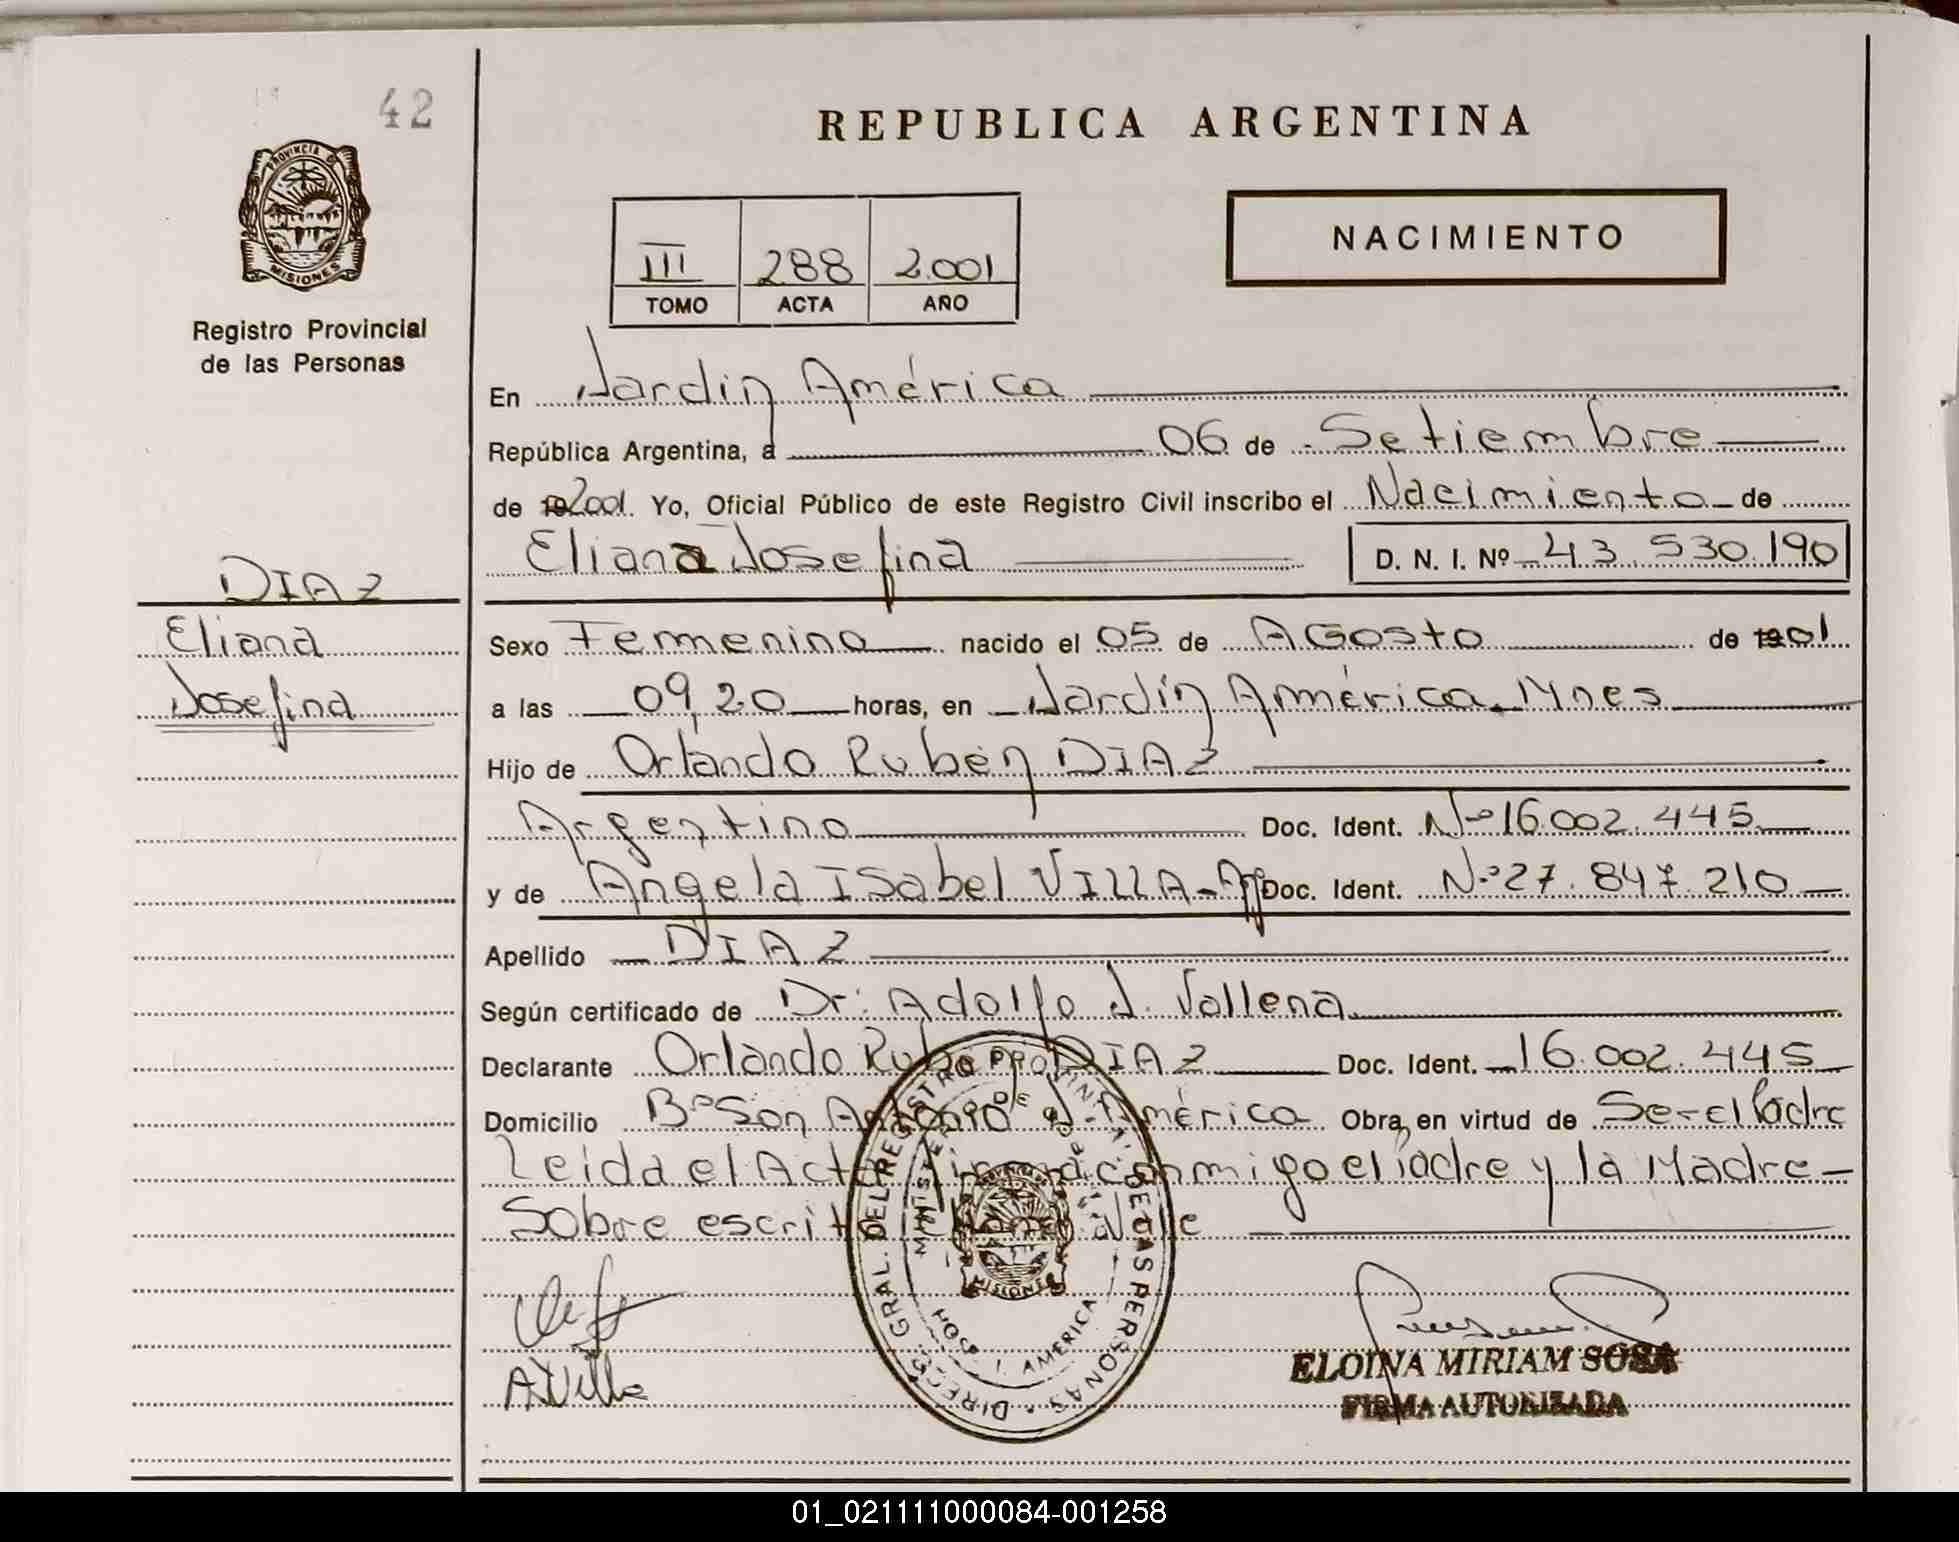 42
PROVINCIA DE
MISIONES
Registro Provincial
de las Personas
DIAZ
Eliana
Josefina
REPUBLICA ARGENTINA
III 288 2.001
TOMO ACTA AÑO
NACIMIENTO
En Jardín América
República Argentina, a 06 de Setiembre
de 19 2001. Yo, Oficial Público de este Registro Civil inscribo el Nacimiento de
Eliana Josefina D. N. I. Nº 43.530.190
Sexo Femenino nacido el 05 de AGosto de 19 01
a las 09,20 horas, en Jardín América Mnes
Hijo de Orlando Rubén DIAZ
Argentino Doc. Ident. Nº 16.002.445
y de Angela ISabel VILLA - Doc. Ident. Nº 27.847.210
Apellido DIAZ
Según certificado de Dr: Adolfo J.
Declarante Orlando Rubé DIAZ Doc. Ident. 16.002.445
Domicilio Bº San Antonio J. América Obra, en virtud de Ser el Padre
Leida el Acta conmigo el Padre y la Madre
Sobre escrito Vale
DIRECC. GRAL. DEL REGISTRO PROVINCIAL DE LAS PERSONAS
MINISTERIO DE
MISIONES
AMERICA
A. Villa
ELOINA MIRIAM SOSA
FIRMA AUTORIZADA
01_021111000084-001258